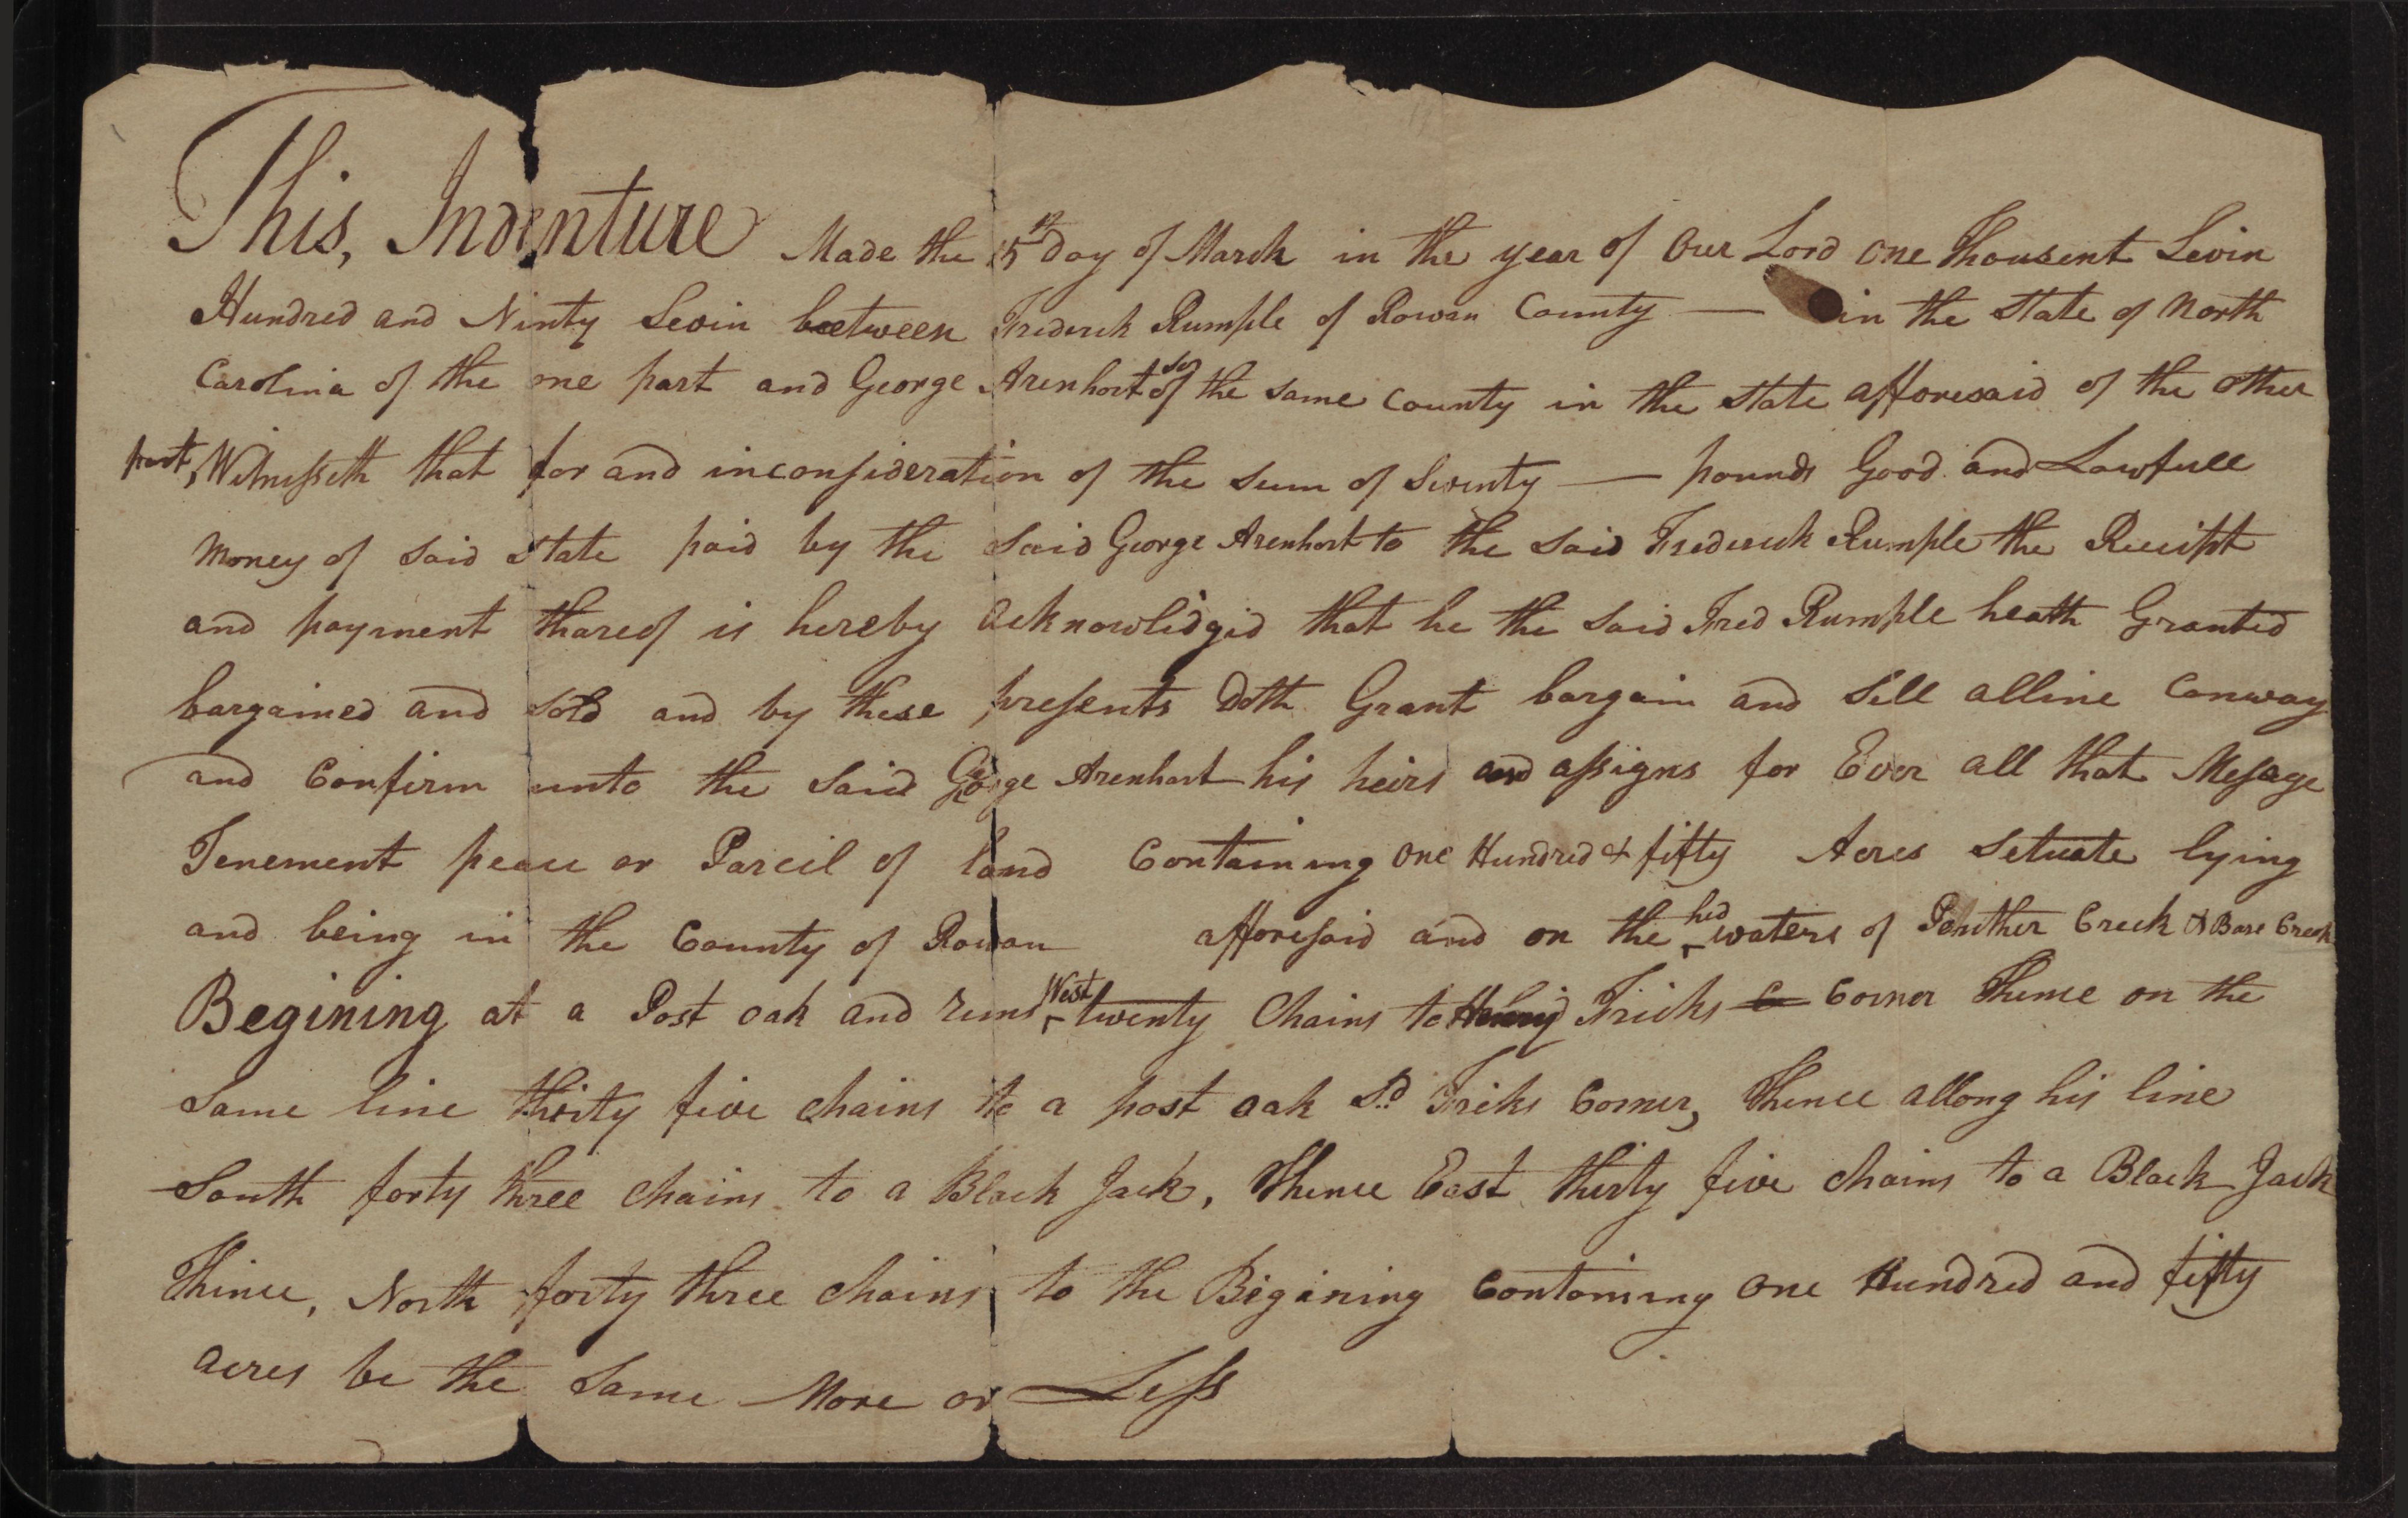 This, Indenture Made the 15th Day of March in the year of Our Lord One Thousent Sevin
Hundred and Ninty Sevin beetween Frederick Rumple of Rowan County — in the State of North
Carolina of the one part and George Arenhort of the same County in the State afforesaid of the other
part, Witnesseth that for and inconsideration of the sum of Sevinty — pounds Good and Lawfull
Money of Said State paid by the Said George Arenhort to the Said Frederick Rumple the Receipt
and payment thareof is hereby acknowlidgid that he the Said Fred Rumple heath Granted
bargained and Sold and by these presents Doth Grant bargain and Sell alline Conway
and Confirm unto the Said George Arenhart his heirs and assigns for Ever all that Mesage
Tenement peace or Parcil of land Containing One Hundred & fifty Acres Setuate lying
and being in the County of Rowan afforesaid and on the hed waters of Panther Creek & Bare Creek
Begining at a Post oak and runs West twenty Chains to Fricks Corner Thence on the
Same line thirty five chains to a post oak Sd Fricks Corner, Thence allong his line
South forty three chains to a Black Jack, Thence East thirty five chains to a Black Jack
Thince, North forty three chains to the Begining Containing One Hundred and fifty
acres be the Same More or Less